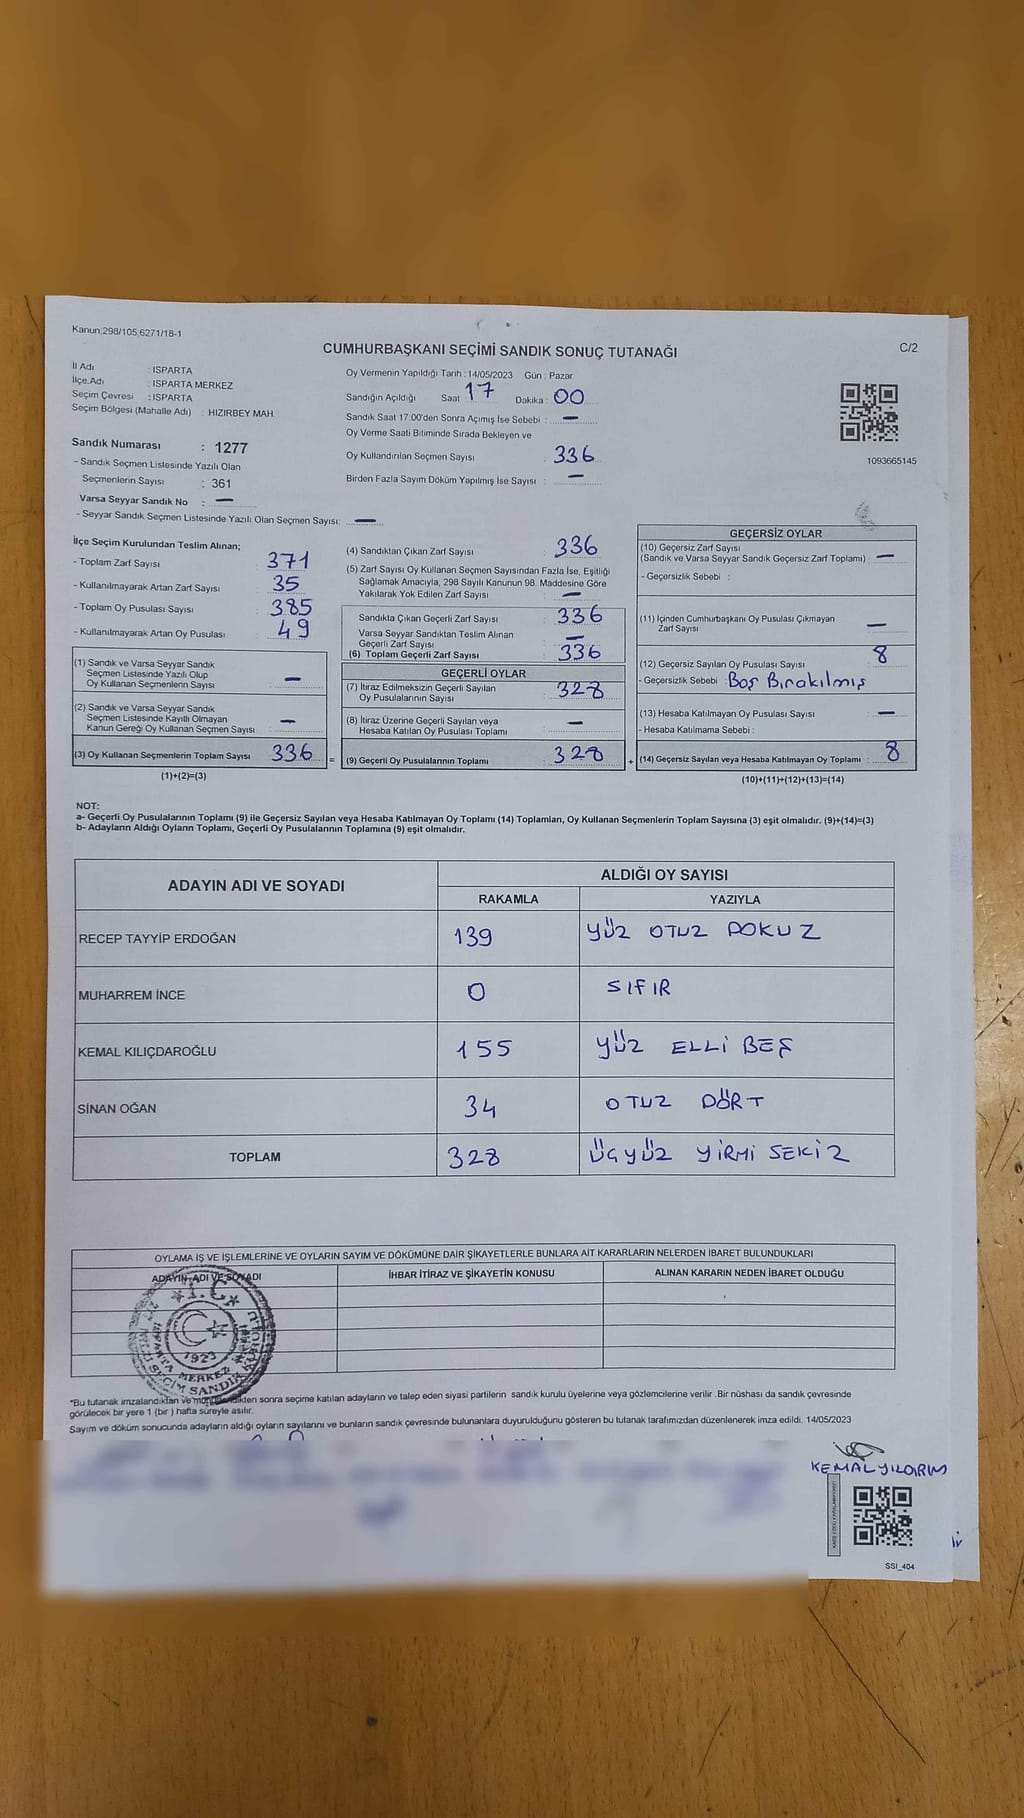 Kanun;298/105,6271/18-1
C/2
CUMHURBAŞKANI SEÇİMİ SANDIK SONUÇ TUTANAĞI
İl Adı : ISPARTA
İlçe Adı : ISPARTA MERKEZ
Seçim Çevresi : ISPARTA
Seçim Bölgesi (Mahalle Adı) : HIZIRBEY MAH.
Sandık Numarası : 1277
- Sandık Seçmen Listesinde Yazılı Olan
Seçmenlerin Sayısı : 361
Varsa Seyyar Sandık No : —
- Seyyar Sandık Seçmen Listesinde Yazılı Olan Seçmen Sayısı: —
Oy Vermenin Yapıldığı Tarih : 14/05/2023 Gün : Pazar
Sandığın Açıldığı Saat : 17 Dakika : 00
Sandık Saat 17:00'den Sonra Açımış İse Sebebi : —
Oy Verme Saati Bitiminde Sırada Bekleyen ve
Oy Kullandırılan Seçmen Sayısı : 336
Birden Fazla Sayım Döküm Yapılmış İse Sayısı : —
1093665145
İlçe Seçim Kurulundan Teslim Alınan;
- Toplam Zarf Sayısı : 371
- Kullanılmayarak Artan Zarf Sayısı : 35
- Toplam Oy Pusulası Sayısı : 385
- Kullanılmayarak Artan Oy Pusulası : 49
(1) Sandık ve Varsa Seyyar Sandık
Seçmen Listesinde Yazılı Olup
Oy Kullanan Seçmenlerin Sayısı : —
(2) Sandık ve Varsa Seyyar Sandık
Seçmen Listesinde Kayıtlı Olmayan
Kanun Gereği Oy Kullanan Seçmen Sayısı : —
(3) Oy Kullanan Seçmenlerin Toplam Sayısı : 336
(1)+(2)=(3)
=
(4) Sandıktan Çıkan Zarf Sayısı : 336
(5) Zarf Sayısı Oy Kullanan Seçmen Sayısından Fazla İse, Eşitliği
Sağlamak Amacıyla, 298 Sayılı Kanunun 98. Maddesine Göre
Yakılarak Yok Edilen Zarf Sayısı : —
Sandıkta Çıkan Geçerli Zarf Sayısı : 336
Varsa Seyyar Sandıktan Teslim Alınan
Geçerli Zarf Sayısı : —
(6) Toplam Geçerli Zarf Sayısı : 336
GEÇERLİ OYLAR
(7) İtiraz Edilmeksizin Geçerli Sayılan
Oy Pusulalarının Sayısı : 328
(8) İtiraz Üzerine Geçerli Sayılan veya
Hesaba Katılan Oy Pusulası Toplamı : —
(9) Geçerli Oy Pusulalarının Toplamı : 328
+
GEÇERSİZ OYLAR
(10) Geçersiz Zarf Sayısı
(Sandık ve Varsa Seyyar Sandık Geçersiz Zarf Toplamı) : —
- Geçersizlik Sebebi :
(11) İçinden Cumhurbaşkanı Oy Pusulası Çıkmayan
Zarf Sayısı : —
(12) Geçersiz Sayılan Oy Pusulası Sayısı : 8
- Geçersizlik Sebebi : Boş Bırakılmış
(13) Hesaba Katılmayan Oy Pusulası Sayısı : —
- Hesaba Katılmama Sebebi :
(14) Geçersiz Sayılan veya Hesaba Katılmayan Oy Toplamı : 8
(10)+(11)+(12)+(13)=(14)
NOT:
a- Geçerli Oy Pusulalarının Toplamı (9) ile Geçersiz Sayılan veya Hesaba Katılmayan Oy Toplamı (14) Toplamları, Oy Kullanan Seçmenlerin Toplam Sayısına (3) eşit olmalıdır. (9)+(14)=(3)
b- Adayların Aldığı Oyların Toplamı, Geçerli Oy Pusulalarının Toplamına (9) eşit olmalıdır.
ADAYIN ADI VE SOYADI
ALDIĞI OY SAYISI
RAKAMLA YAZIYLA
RECEP TAYYİP ERDOĞAN 139 YÜZ OTUZ DOKUZ
MUHARREM İNCE 0 SIFIR
KEMAL KILIÇDAROĞLU 155 YÜZ ELLİ BEŞ
SİNAN OĞAN 34 OTUZ DÖRT
TOPLAM 328 ÜÇYÜZ YİRMİ SEKİZ
OYLAMA İŞ VE İŞLEMLERİNE VE OYLARIN SAYIM VE DÖKÜMÜNE DAİR ŞİKAYETLERLE BUNLARA AİT KARARLARIN NELERDEN İBARET BULUNDUKLARI
ADAYIN ADI VE SOYADI İHBAR İTİRAZ VE ŞİKAYETİN KONUSU ALINAN KARARIN NEDEN İBARET OLDUĞU
T.C.
1923
ISPARTA MERKEZ
SEÇİM SANDIK KURULU
*Bu tutanak imzalandıktan ve mühürlendikten sonra seçime katılan adayların ve talep eden siyasi partilerin sandık kurulu üyelerine veya gözlemcilerine verilir. Bir nüshası da sandık çevresinde
görülecek bir yere 1 (bir) hafta süreyle asılır.
Sayım ve döküm sonucunda adayların aldığı oyların sayılarını ve bunların sandık çevresinde bulunanlara duyurulduğunu gösteren bu tutanak tarafımızdan düzenlenerek imza edildi. 14/05/2023
KEMAL YILDIRIM
SSI_404